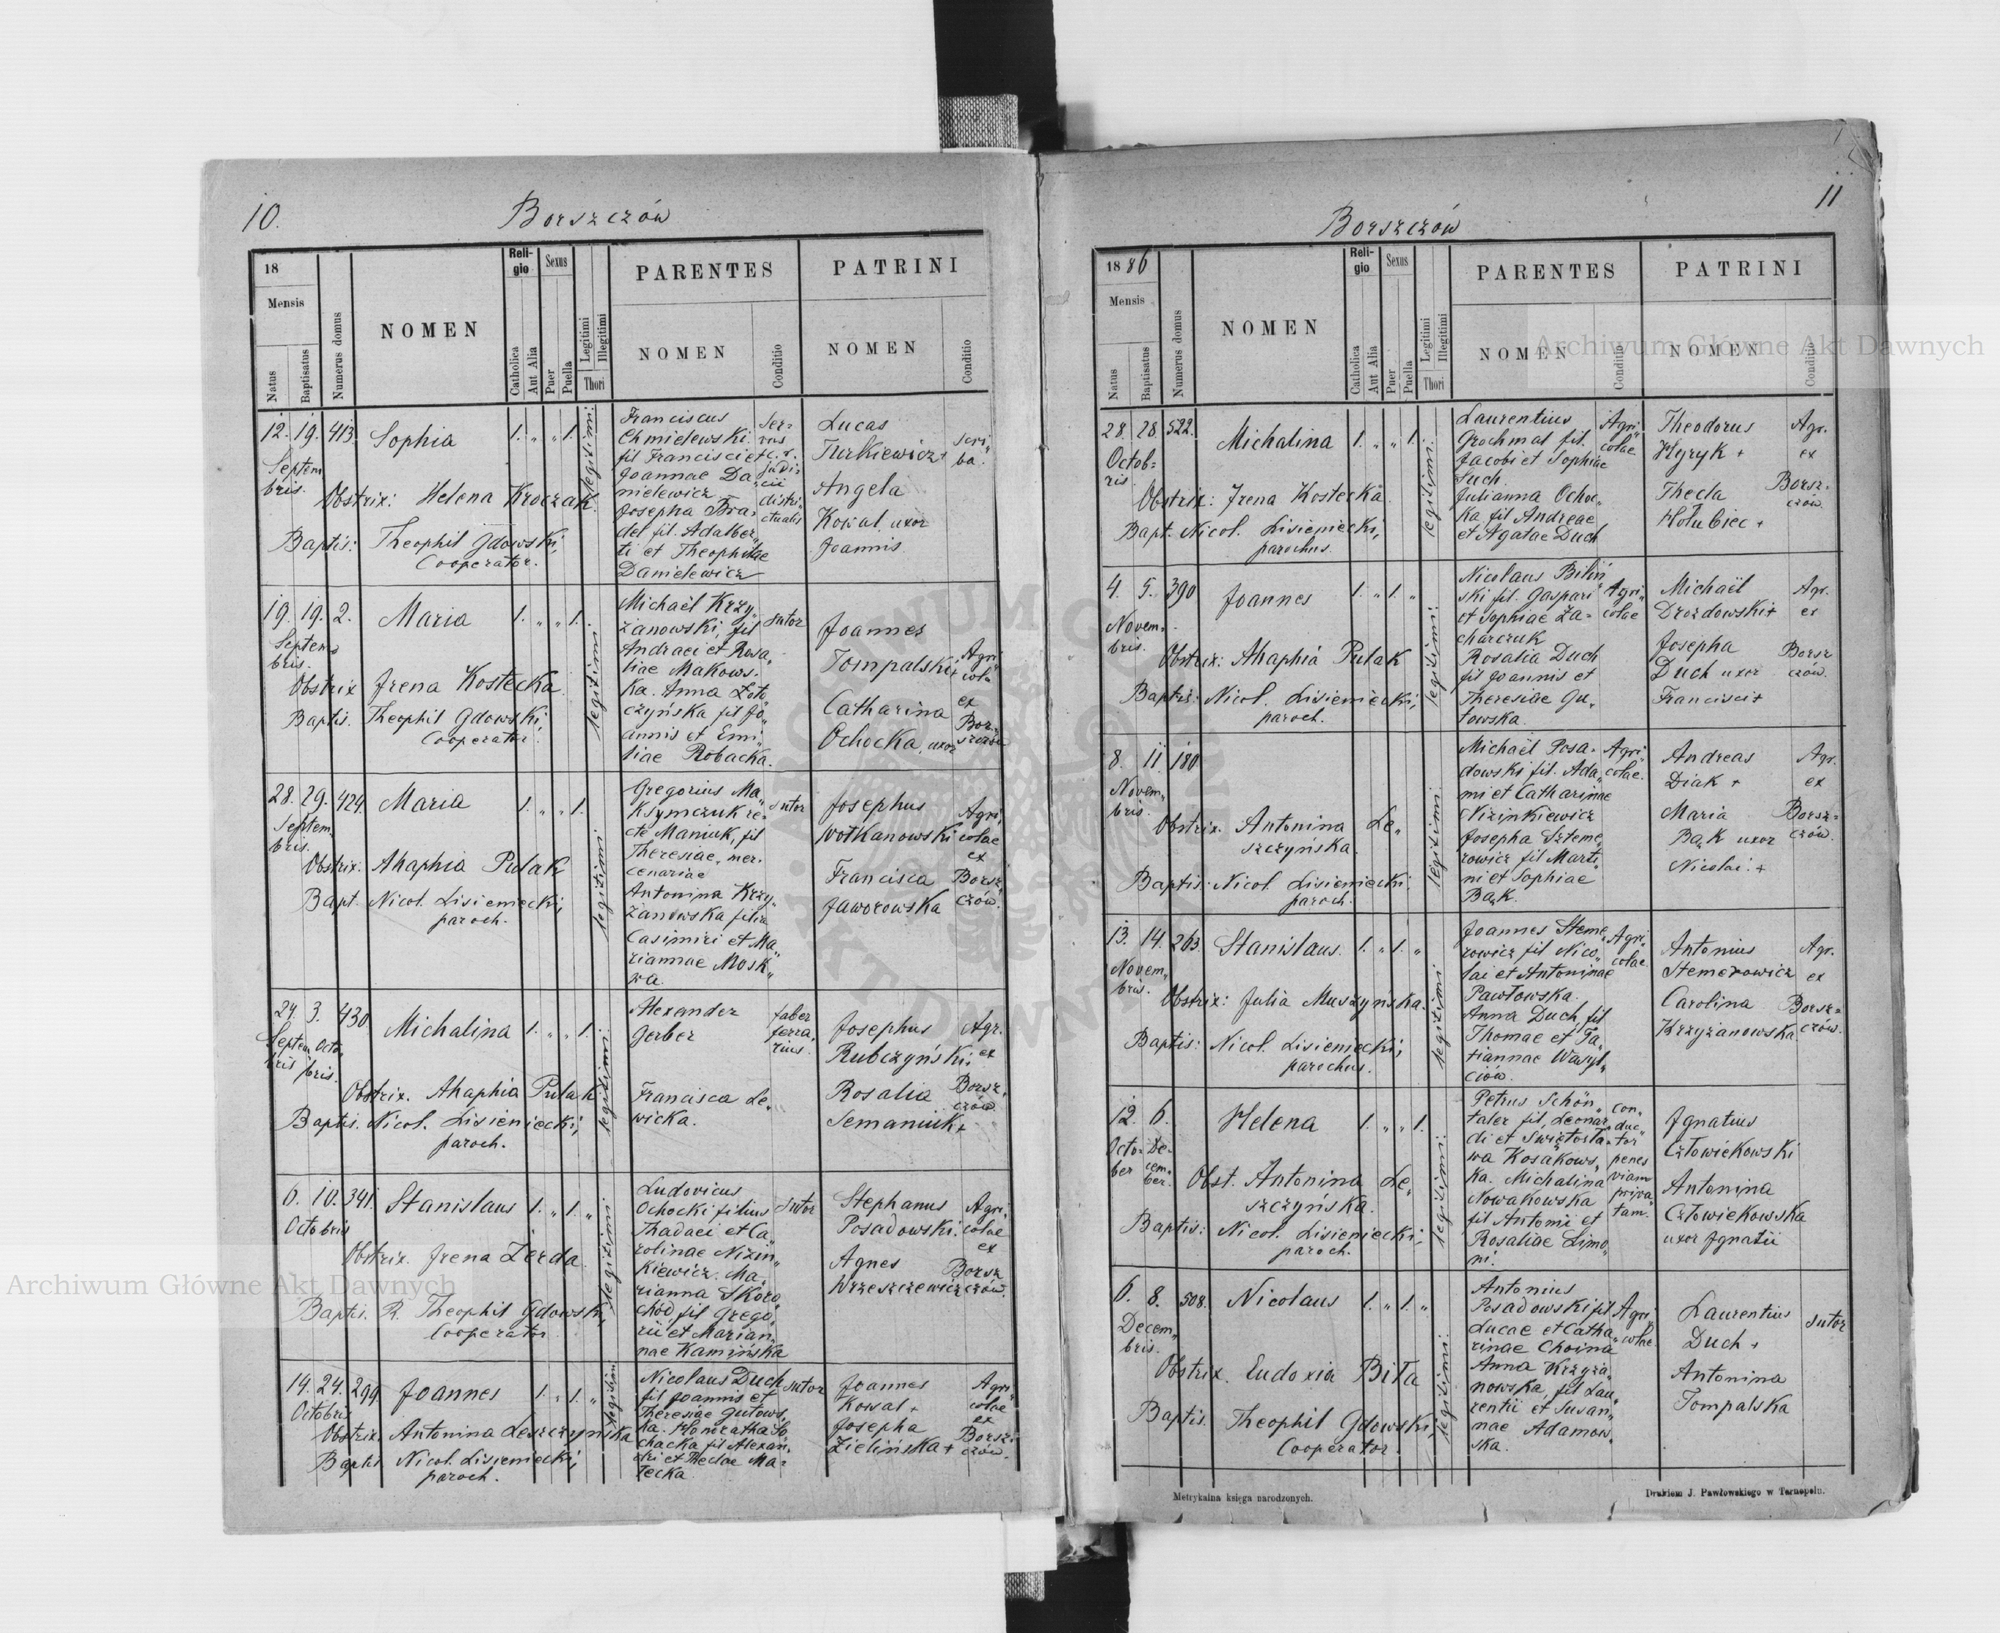 10.
Borszczów
18
Mensis
Natus
Baptisatus
Numerus domus
NOMEN
Religio
Catholica
Aut Alia
Sexus
Puer
Puella
Legitimi
Illegitimi
Thori
PARENTES
NOMEN
Conditio
PATRINI
NOMEN
Conditio
12. 19. 413. Sophia 1. „ „ 1.
Septem
bris.
Obstrix: Helena Kroczak
Baptis: Theophil Gdowski,
Cooperator.
legitimi
Franciscus
Chmielewski
fil Francisci et
Joannae Da„
nielewicz
Josepha Bra„
del fil. Adalber„
ti et Theophilae
Danielewicz
Ser„
vus
c. r.
judi„
cii
distri„
ctualis
Lucas
Turkiewicz+
Angela
Kowal uxor
Joannis
scri„
ba.
19. 19. 2. Maria 1. „ „ 1.
Septem
bris.
Obstrix Irena Kostecka
Baptis. Theophil Gdowski,
Cooperator.
legitimi
Michaël Krzy„
żanowski, fil
Andraei et Rosa„
liae Makows„
ka. Anna Zoto
czyńska fil Jo„
annis et Emi„
liae Robacka.
sutor
Joannes
Tompalski+
Catharina
Ochocka, uxor
Agri
colae
ex
Bor„
szczów
28. 29. 424. Maria 1. „ „ 1.
Septem„
bris.
Obstrix. Ahaphia Pulak
Bapt. Nicol. Lisieniecki,
paroch.
legitimi
Gregorius Ma„
ksymczuk re„
cte Maniuk, fil
Theresiae, mer„
cenariae
Antonina Krzy„
żanowska filia
Casimiri et Ma„
riannae Mosk„
wa.
sutor
Josephus
Wołkanowski
Francisca
Jaworowska
Agri„
colae
ex
Borsz„
czów.
29. 3. 430. Michalina 1. „ „ 1.
Septem Octo
bris bris.
Obstrix. Ahaphia Pulak
Baptis. Nicol. Lisieniecki,
paroch.
legitimi
Alexander
Gerber
Francisca Le„
wicka.
faber
ferra„
rius.
Josephus
Rubczyński
Rosalia
Semaniuk+
Agr.
ex
Borsz„
czów
6. 10. 341. Stanislaus 1. „ 1. „
Octobris
Obstrix. Irena Zerda
Baptis. R. Theophil Gdowski,
Cooperator
legitimi
Ludovicus
Ochocki filius
Thadaei et Ca„
rolinae Nizin„
kiewicz. Ma„
rianna Skoro„
chód, fil Grego„
rii et Marian„
nae Kamińska
sutor
Stephanus
Posadowski.
Agnes
Wrzeszczewicz
Agri„
colae
ex
Borsz
czów.
14. 24. 299. Joannes 1. „ 1. „
Octobris
Obstrix. Antonina Leszczyńska
Baptis Nicol. Lisieniecki,
paroch.
legitimi
Nicolaus Duch
fil Joannis et
Theresiae Gutows„
ka. Honoratha So
chacka fil Alexan„
dri et Theclae Ma„
łecka
sutor
Joannes
Kowal +
Josepha
Zielińska +
Agri„
colae
ex
Borsz„
czów.
11
Borszczów
18 86
Mensis
Natus
Baptisatus
Numerus domus
NOMEN
Religio
Catholica
Aut Alia
Sexus
Puer
Puella
Legitimi
Illegitimi
Thori
PARENTES
NOMEN
Conditio
PATRINI
NOMEN
Conditio
28. 28. 522. Michalina 1. „ „ 1.
Octob„
ris.
Obstrix: Irena Kostecka
Bapt. Nicol. Lisieniecki,
parochus.
legitimi.
Laurentius
Grochmal fil.
Jacobi et Sophiae
Such.
Julianna Ochoc„
ka fil Andreae
et Agatae Duch
Agri„
colae
Theodorus
Hyryk +
Thecla
Hołubiec +
Agr.
ex
Borsz„
czów.
4. 5. 390 Joannes 1. „ 1. „
Novem„
bris.
Obstrix: Ahaphia Pulak
Baptis: Nicol. Lisieniecki,
paroch.
legitimi.
Nicolaus Biliń„
ski fil. Gaspari
et Sophiae Za„
charczuk
Rosalia Duch
fil Joannis et
Theresiae Gu„
towska.
Agri„
colae
Michaël
Drozdowski+
Josepha
Duch uxor
Francisci+
Agr.
ex
Borsz
czów.
8. 11. 180
Novem„
bris.
Obstrix. Antonina Le„
szczyńska.
Baptis: Nicol. Lisieniecki
paroch.
legitimi
Michaël Posa„
dowski fil. Ada„
mi et Catharinae
Nizinkiewicz
Josepha Szteme„
rowicz fil Marti„
ni et Sophiae
Bąk.
Agri„
colae.
Andreas
Diak +
Maria
Bąk uxor
Nicolai +
Agr.
ex
Borsz„
czów.
13. 14. 263 Stanislaus. 1. „ 1. „
Novem„
bris.
Obstrix: Julia Muszyńska.
Baptis: Nicol. Lisieniecki,
parochus.
legitimi
Joannes Steme„
rowicz fil Nico„
lai et Antoninae
Pawłowska.
Anna Duch fil
Thomae et Ta„
tiannae Wasyl„
ciów.
Agri„
colae.
Antonius
Stemerowicz
Carolina
Krzyżanowska
Agr.
ex
Borsz„
czów.
12. 6. Helena 1. „ „ 1.
Octo„ De„
ber cem„
ber.
Obst. Antonina Le„
szczyńska.
Baptis: Nicol. Lisieniecki,
paroch.
legitimi.
Petrus Schön„
taler fil, Leonar„
di et Swiętosła„
wa Kosakows„
ka. Michalina
Nowakowska
fil Antonii et
Rosaliae Limo„
ni.
con„
duc„
tor
penes
viam
priva„
tam.
Ignatius
Człowiekowski
Antonina
Człowiekowska
uxor Ignatii
6. 8. 508. Nicolaus 1. „ 1. „
Decem„
bris.
Obstrix. Eudoxia Biła
Baptis. Theophil Gdowski,
Cooperator.
legitimi.
Antonius
Posadowski fil
Lucae et Catha„
rinae Choina
Anna Krzyża„
nowska, fil Lau„
rentii et Susan„
nae Adamow„
ska.
Agri„
colae.
Laurentius
Duch +
Antonina
Tompalska
sutor
Metrykalna księga narodzonych.
Drukiem J. Pawłowskiego w Tarnopolu.
Archiwum Główne Akt Dawnych
Archiwum Główne Akt Dawnych